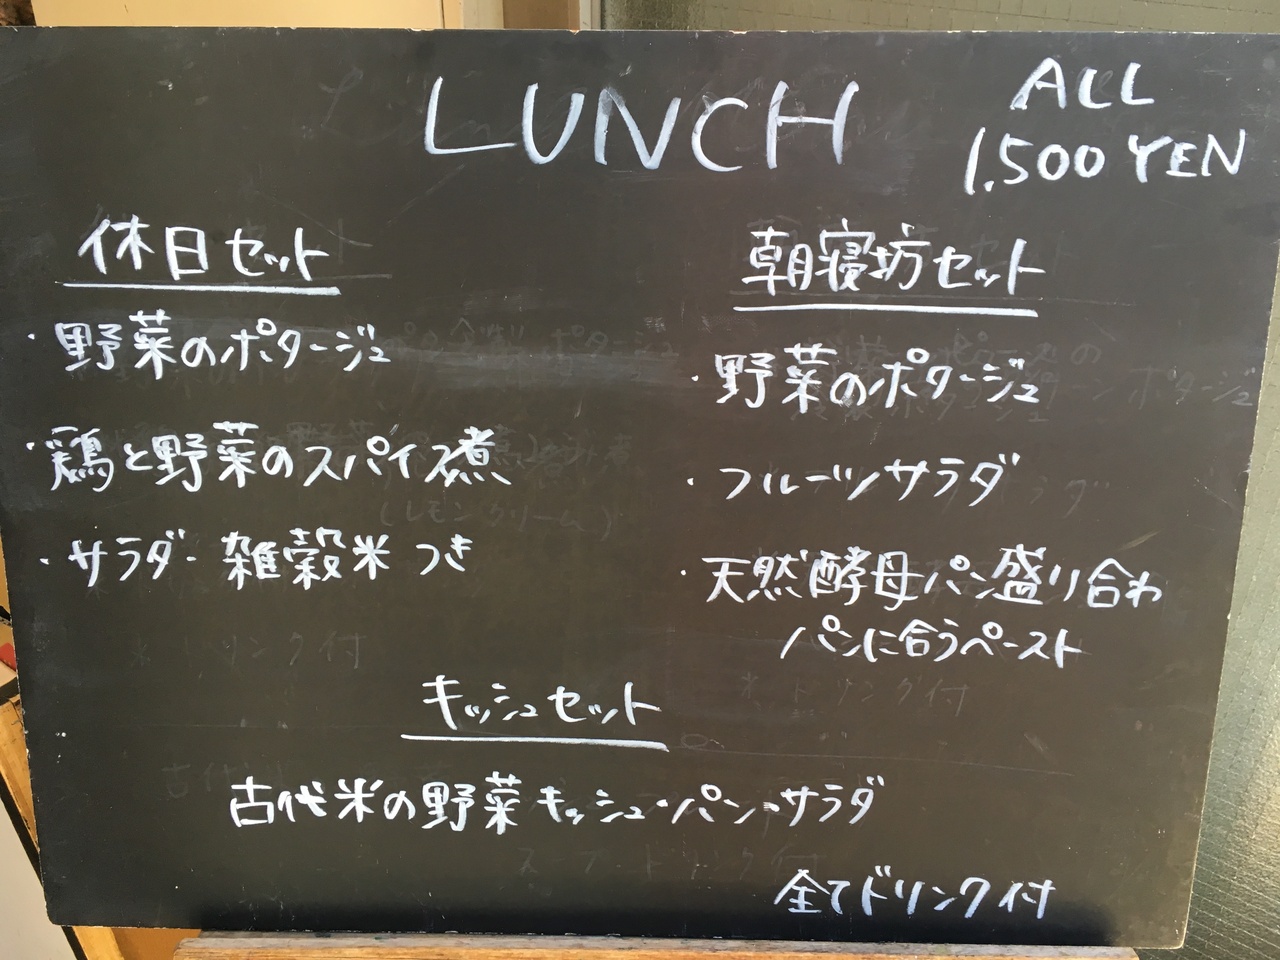 LUNCH
ALL
1.500 YEN
休日セット
・野菜のポタージュ
・鶏と野菜のスパイス煮
・サラダ・雑穀米 つき
朝寝坊セット
・野菜のポタージュ
・フルーツサラダ
・天然酵母パン盛り合わ
パンに合うペースト
キッシュセット
古代米の野菜キッシュ・パン・サラダ
全てドリンク付